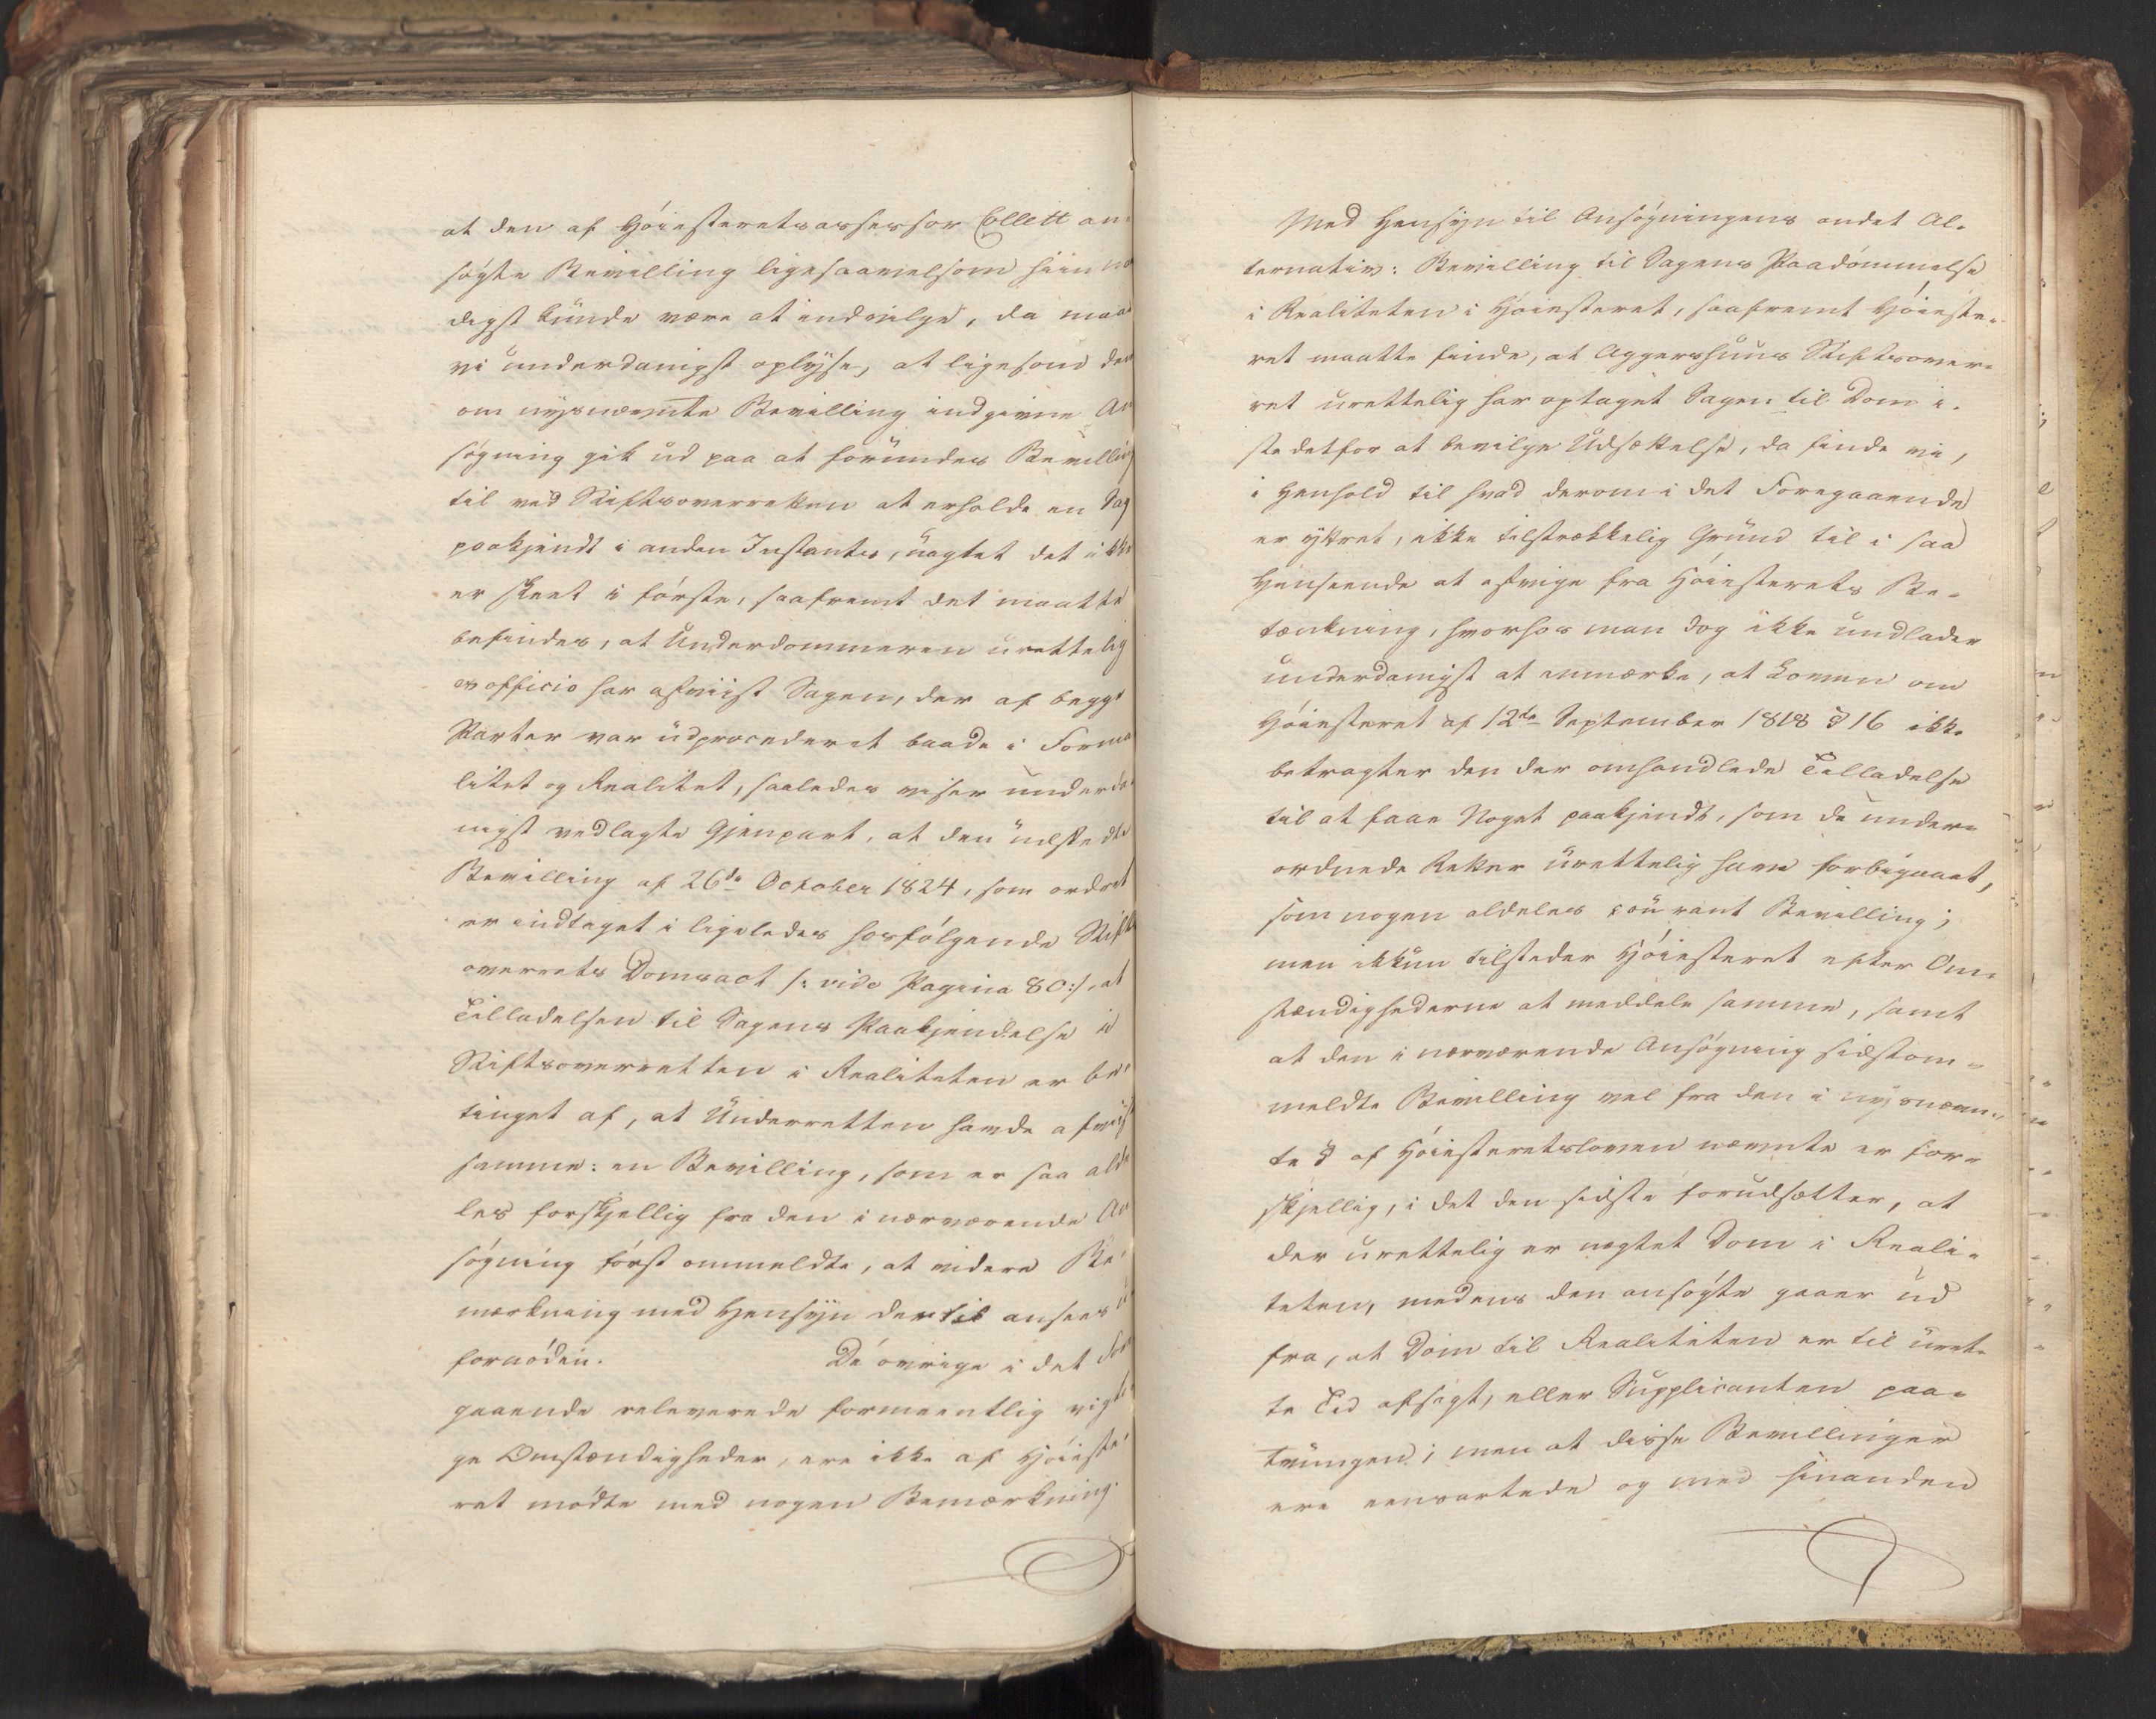 at den af Høiesteretsassessor Collett an-
søgte Bevilling ligesaavelsom hiin naa
digst kunde være at indvilge, da maae
vi underdanigst oplyse, at ligesom den
om nysnævnte Bevilling indgivne An
søgning gik ud paa at forundes Bevilling
til ved Stiftsoverretten at erholde en Sag
paakjendt i anden Instants, uagtet det ikke
er skeet i første, saafremt det maatte
befindes, at Underdommeren urettelig
ex officio har afviist Sagen, der af begge
Parter var udprocederet baade i Forma
litet og Realitet, saaledes viser underda
nigst vedlagte Gjenpart, at den udstedte
Bevilling af 26de October 1824, som ordret
er indtaget i ligeledes hosfølgende Stifts
overrets Domsact /: vide Pagina 80 :/, at
Tilladelsen til Sagens Paakjendelse i
Stiftsoverretten i Realiteten er be-
tinget af, at Underretten havde afviist
samme: en Bevilling, som er saa alde
les forskjellig fra den i nærværende An
søgning først ommeldte, at videre Be-
mærkning med Hensyn dertil ansees u
fornøden. De øvrige i det Fore
gaaende releverede formeentlig vigti
ge Omstændigheder, ere ikke af Høieste-
ret mødte med nogen Bemærkning.
Med Hensyn til Ansøgningens andet Al-
ternativ: Bevilling til Sagens Paadømmelse
i Realiteten i Høiesteret, saafremt Høieste-
ret maatte finde, at Aggershuus Stiftsover-
ret urettelig har optaget Sagen til Dom i-
stedetfor at bevilge Udsættelse, da finde vi,
i Henhold til hvad derom i det Foregaaende
er yttret, ikke tilstrækkelig Grund til i saa
Henseende at afvige fra Høiesterets Be-
tænkning, hvorhos man dog ikke undlader
underdanigst at anmærke, at Loven om
Høiesteret af 12te September 1818 § 16 ikke
betragter den der omhandlede Tilladelse
til at faae Noget paakjendt, som de under-
ordnede Retter urettelig have forbigaaet,
som nogen aldeles courant Bevilling;
men ikkun tilsteder Høiesteret efter Om-
stændighederne at meddele samme, samt
at den i nærværende Ansøgning sidstom-
meldte Bevilling vel fra den i nysnævn-
te § af Høiesteretsloven nævnte er for-
skjellig, i det den sidste forudsætter, at
der urettelig er nægtet Dom i Reali-
teten, medens den ansøgte gaaer ud
fra, at Dom til Realiteten er til uret-
te Tid afsagt, eller Supplicanten paa-
tvungen; men at disse Bevillinger
ere eensartede og med hinanden